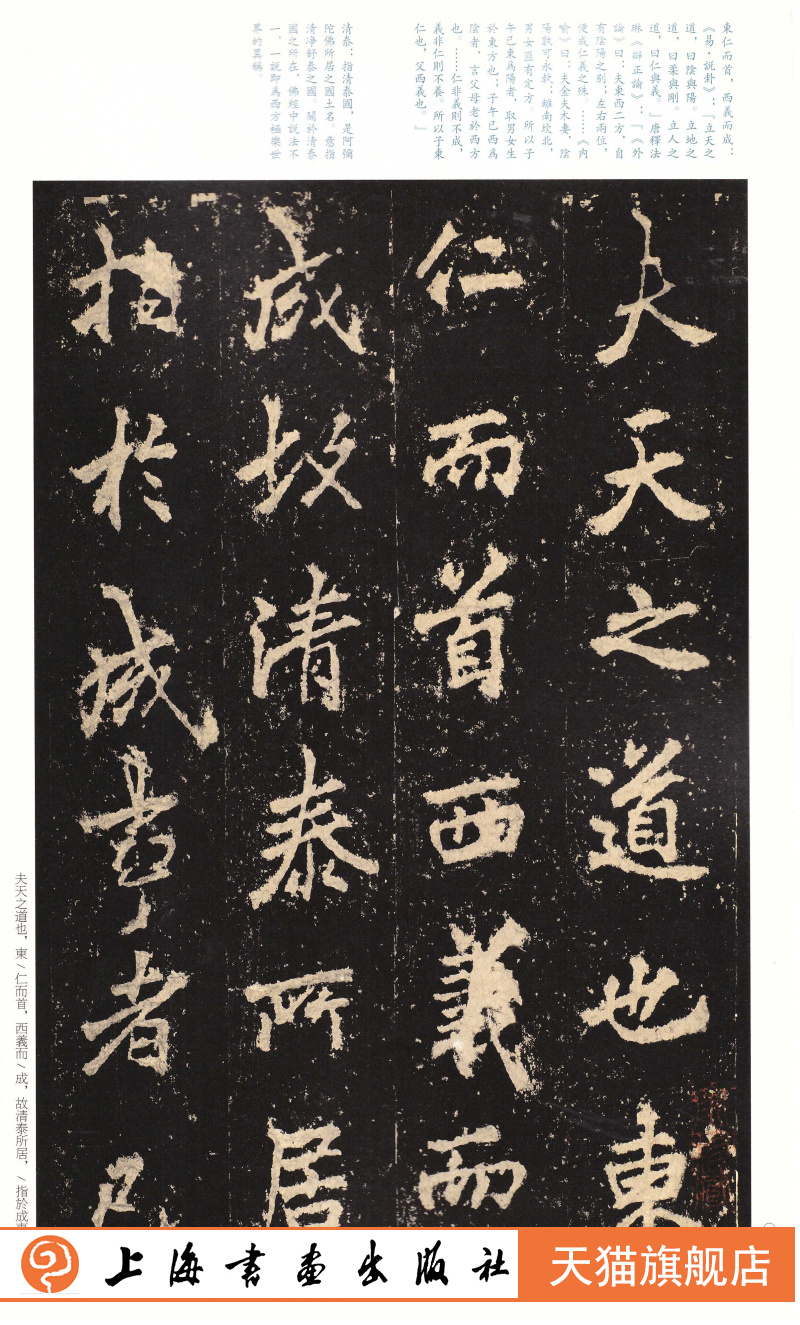 東仁而首，西義而成：
《易·説卦》：『立天之
道，曰陰與陽。立地之
道，曰柔與剛。立人之
道，曰仁與義。』唐釋法
琳《辯正論》：『《外
論》曰：夫東西二方，自
有陰陽之别；左右兩位，
便成仁義之殊。……《内
喻》曰：夫金夫木妻，陰
陽孰可永執；離南坎北，
男女匪有定方。所以子
午已東爲陽者，取男女生
於東方也；子午已西爲
陰者，言父母老於西方
也。……仁非義則不成，
義非仁則不養。所以子東
仁也，父西義也。』
清泰：指清泰國，是阿彌
陀佛所居之國土名。意指
清净舒泰之國。關於清泰
國之所在，佛經中説法不
一，一説即爲西方極樂世
界的異稱。
夫天之道也東
仁而首西義而
成故清泰所居
指於成事者已
夫天之道也，東/仁而首，西義而/成，故清泰所居，/指於成事
上海書畫出版社
天猫旗舰店